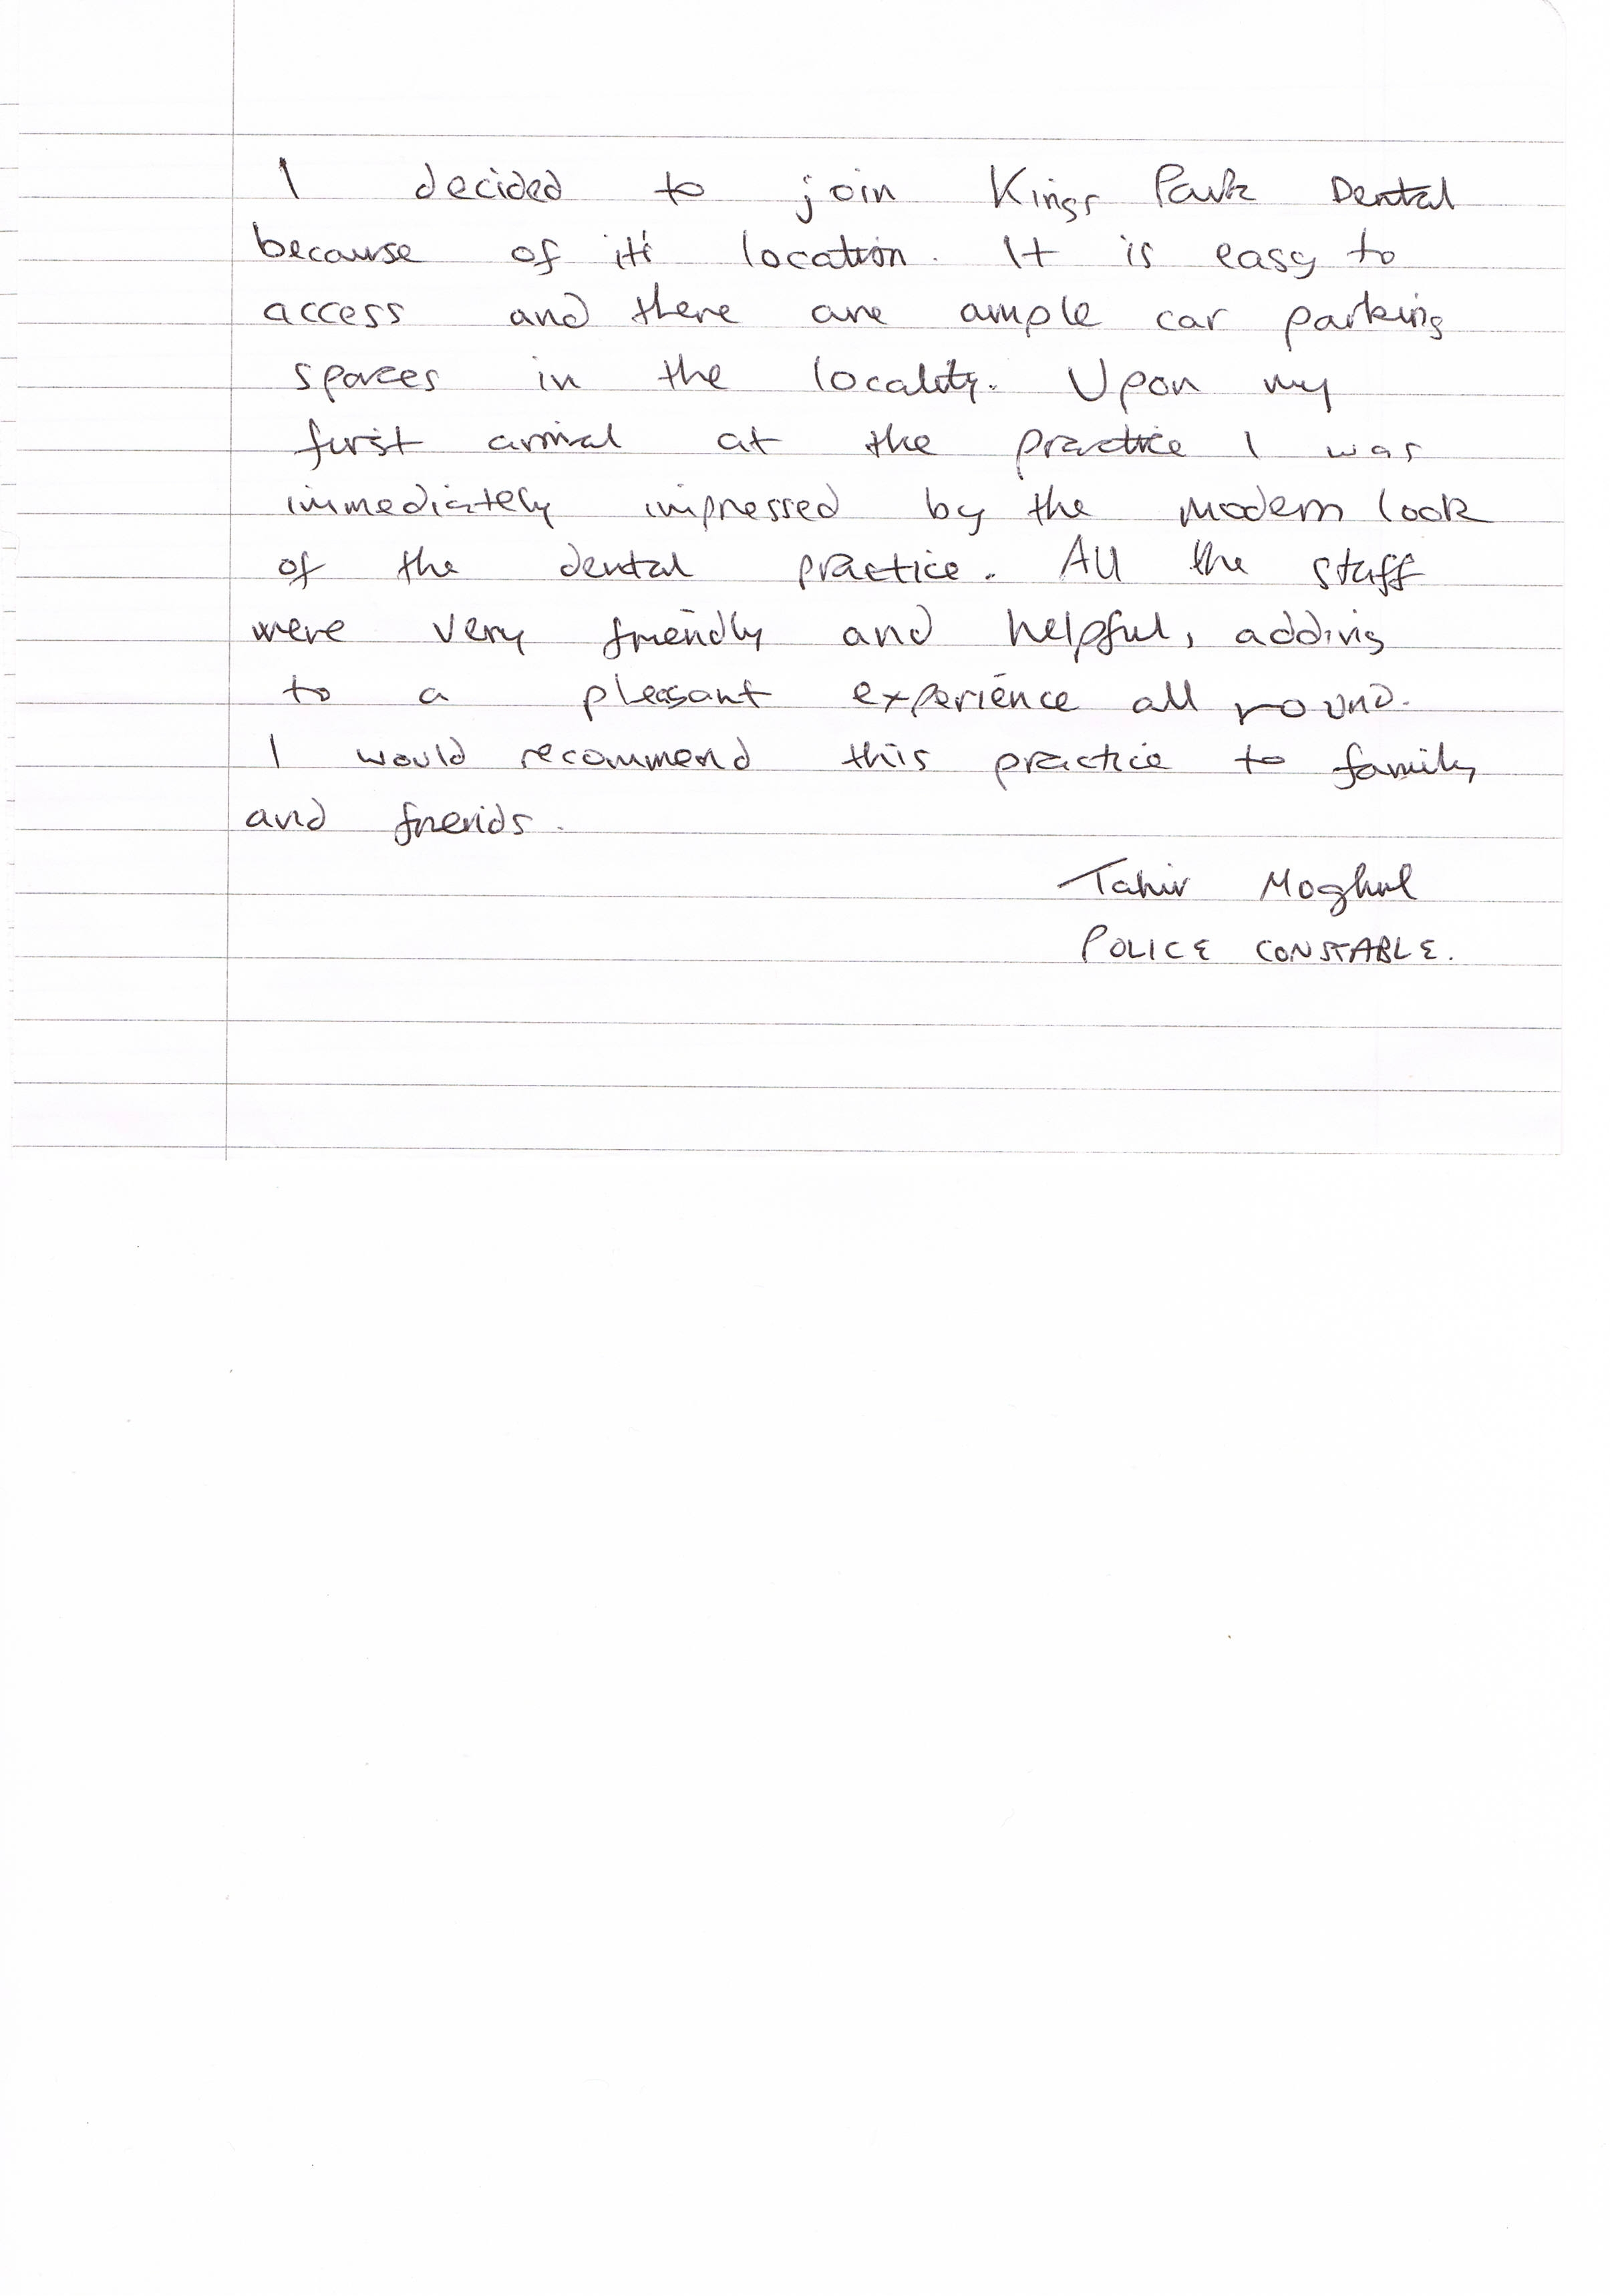 I decided to join Kings Park Dental
because of it's location. It is easy to
access and there are ample car parking
spaces in the locality. Upon my
first arrival at the practice I was
immediately impressed by the modern look
of the dental practice. All the staff
were very friendly and helpful, adding
to a pleasant experience all round.
I would recommend this practice to family
and friends.
Tahir Moghul
POLICE CONSTABLE.